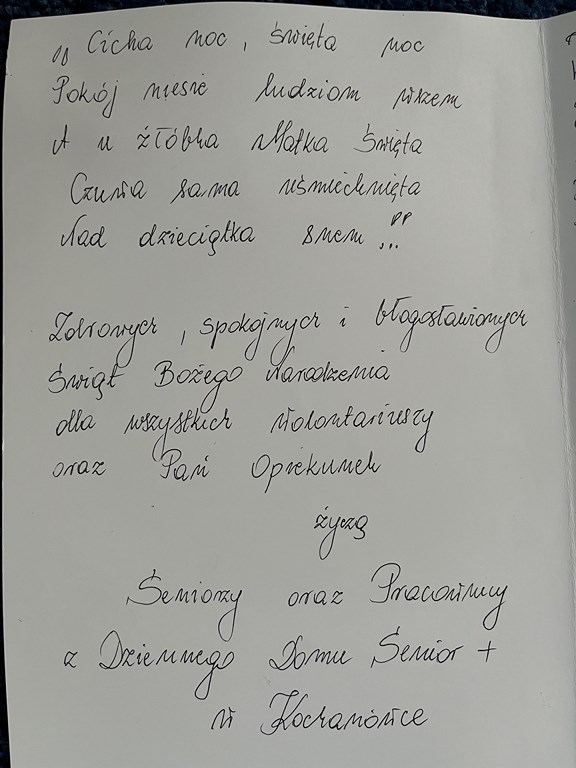 „Cicha noc, święta noc
Pokój niesie ludziom wszem
A u żłóbka Matka Święta
Czuwa sama uśmiechnięta
Nad dzieciątka snem..."
Zdrowych, spokojnych i błogosławionych
Świąt Bożego Narodzenia
dla wszystkich wolontariuszy
oraz Pań Opiekunek
życzą
Seniorzy oraz Pracownicy
z Dziennego Domu Senior +
w Kochanówce